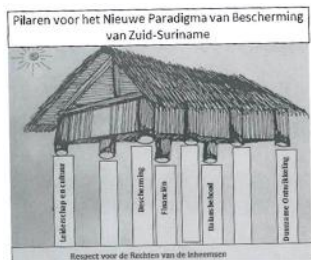 Pilaren voor het Nieuwe Paradigma van Bescherming
van Zuid-Suriname
Leiderschap en cultuur
Bescherming
Financiën
Balansbehoud
Duurzame Ontwikkeling
Respect voor de Rechten van de Inheemsen